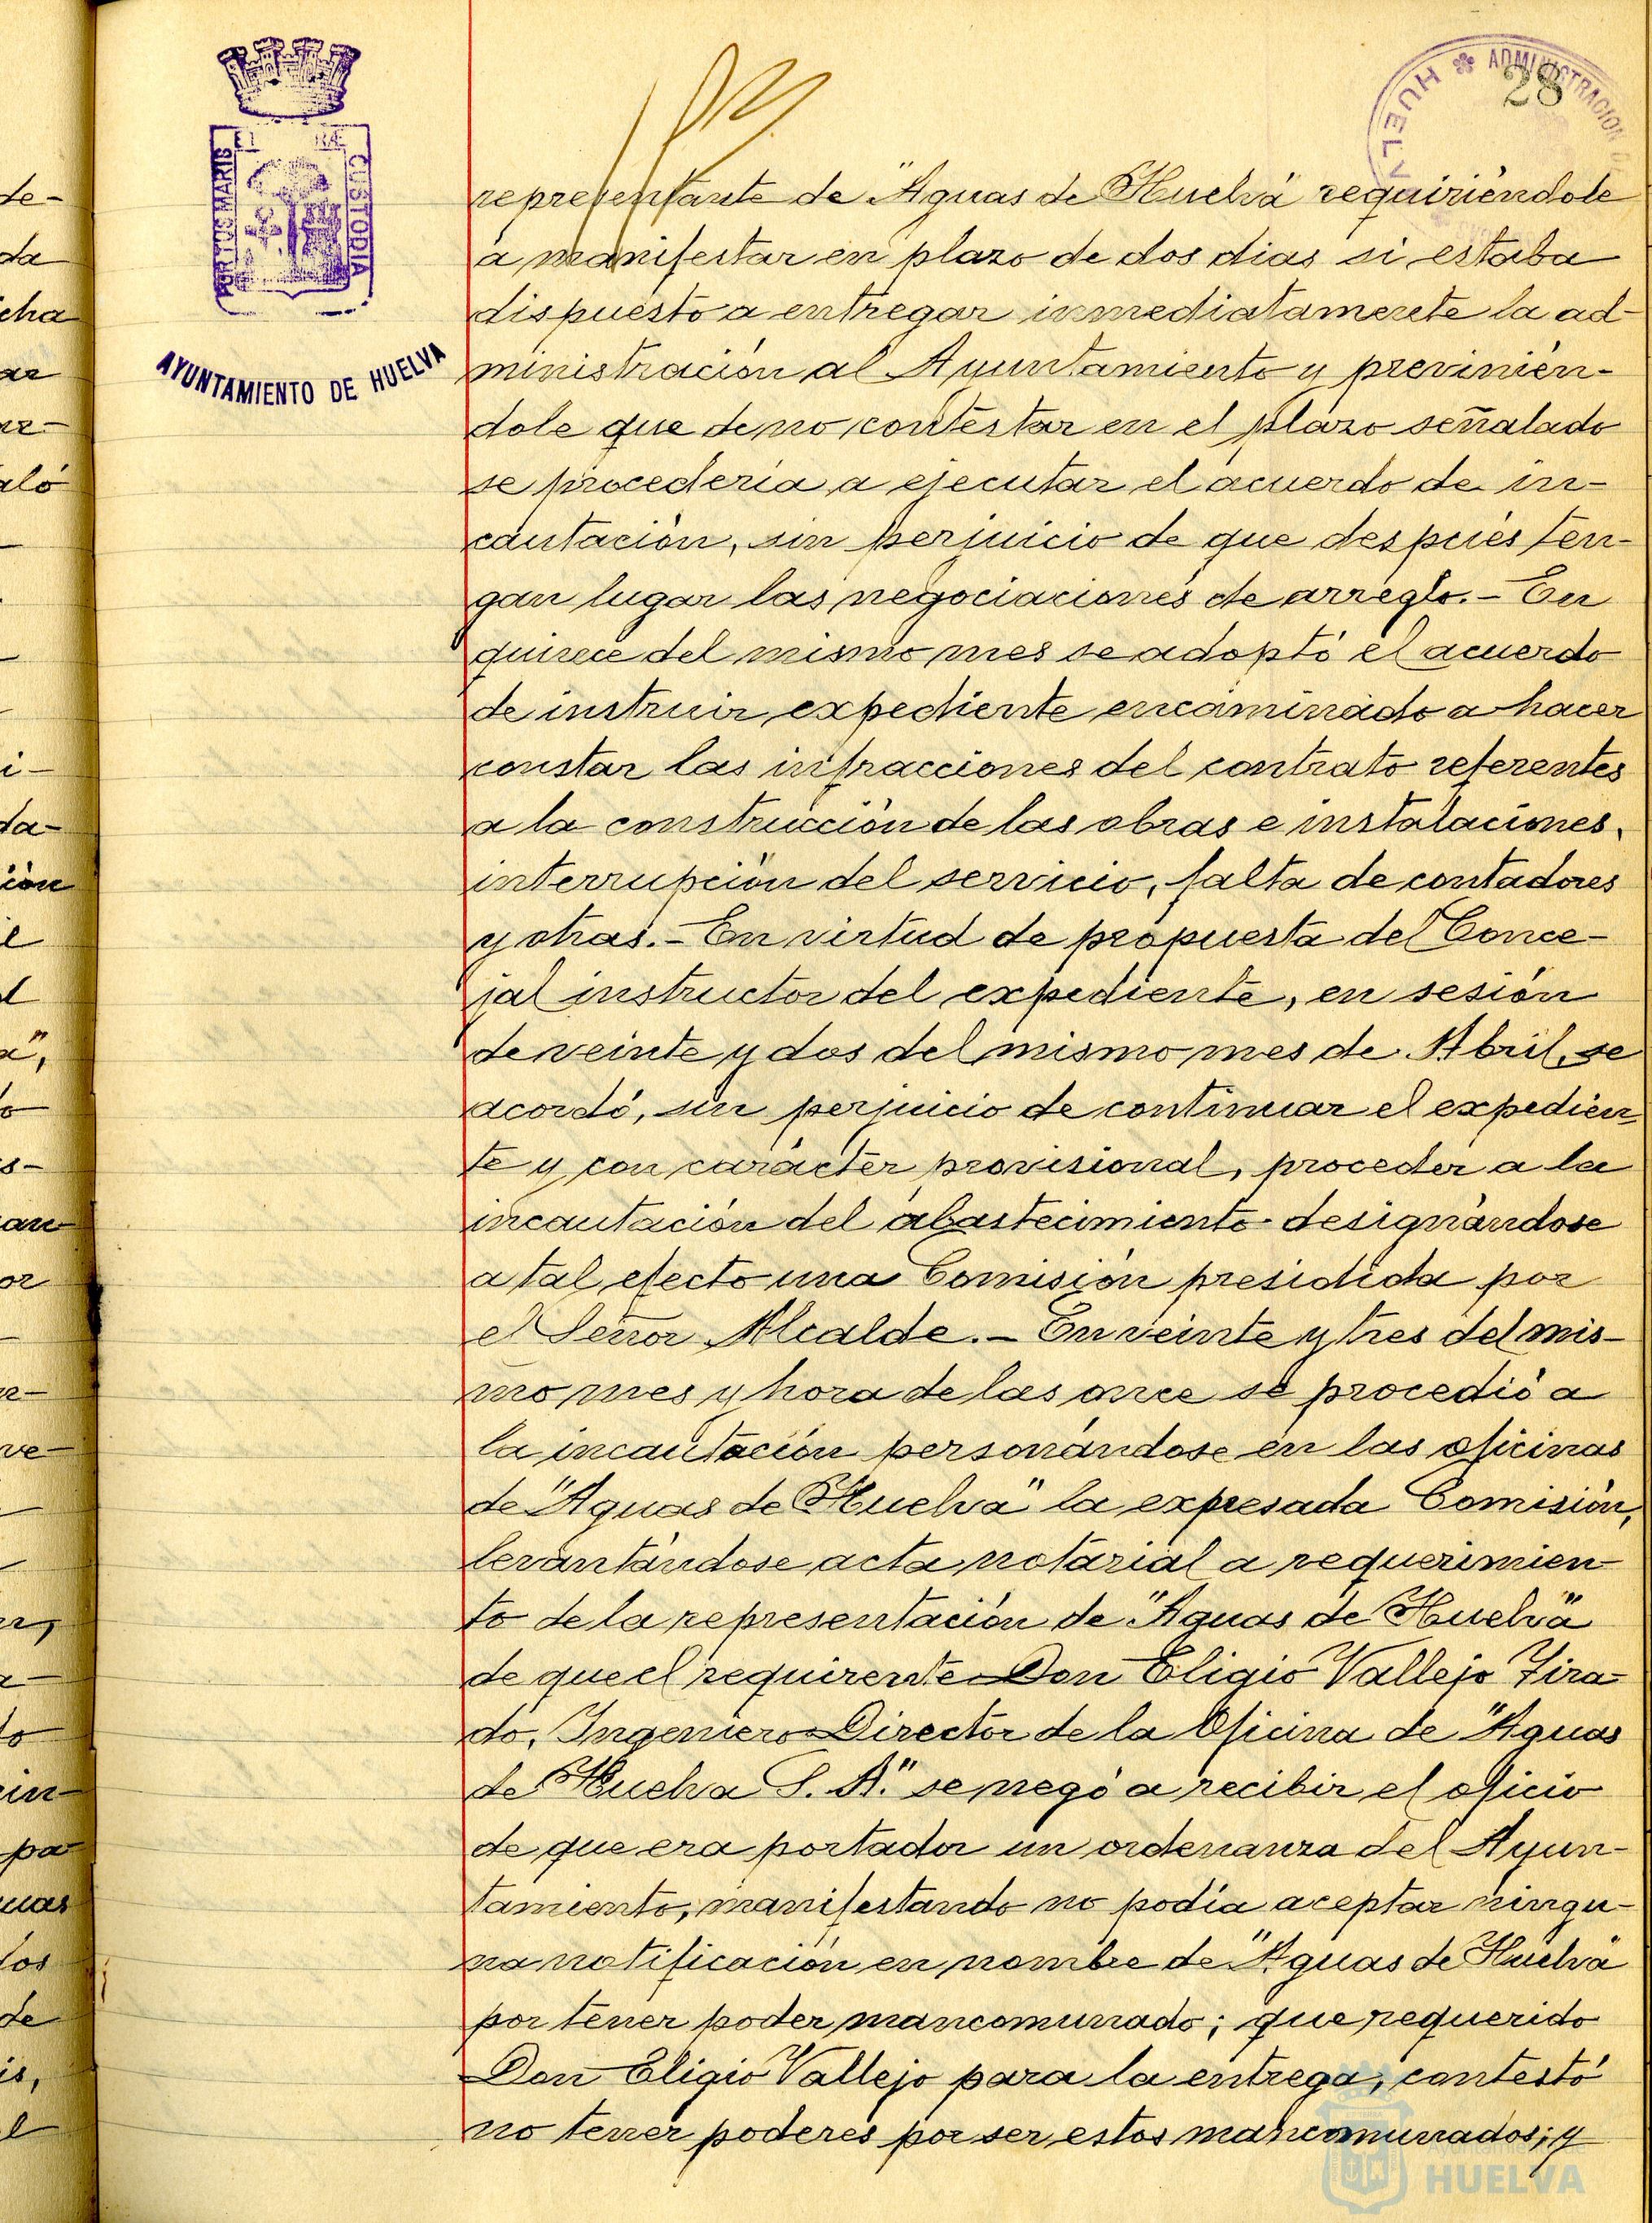 28
HUELVA ADMINISTRACION
PORTUS MARIS ET TERRAE CUSTODIA
AYUNTAMIENTO DE HUELVA
representante de "Aguas de Huelva" requiriéndole
a manifestar en plazo de dos dias si estaba
dispuesto a entregar inmediatamente la ad-
ministración al Ayuntamiento y previnién-
dole que de no contestar en el plazo señalado
se procedería a ejecutar el acuerdo de in-
cautación, sin perjuicio de que después ten-
gan lugar las negociaciones de arreglo.- En
quince del mismo mes se adoptó el acuerdo
de instruir expediente encaminado a hacer
constar las infracciones del contrato referentes
a la construcción de las obras e instalaciones,
interrupción del servicio, falta de contadores
y otras.- En virtud de propuesta del Conce-
jal instructor del expediente, en sesión
de veinte y dos del mismo mes de Abril, se
acordó, sin perjuicio de continuar el expedien-
te y con carácter provisional, proceder a la
incautación del abastecimiento designándose
a tal efecto una Comisión presidida por
el Señor Alcalde.- En veinte y tres del mis-
mo mes y hora de las once se procedió a
la incautación personándose en las oficinas
de "Aguas de Huelva" la expresada Comisión,
levantándose acta notarial a requerimien-
to de la representación de "Aguas de Huelva"
de que el requirente Don Eligio Vallejo Tira-
do, Ingeniero Director de la Oficina de "Aguas
de Huelva S. A." se negó a recibir el oficio
de que era portador un ordenanza del Ayun-
tamiento, manifestando no podía aceptar ningu-
na notificación en nombre de "Aguas de Huelva"
por tener poder mancomunado; que requerido
Don Eligio Vallejo para la entrega, contestó
no tener poderes por ser estos mancomunados; y
HUELVA